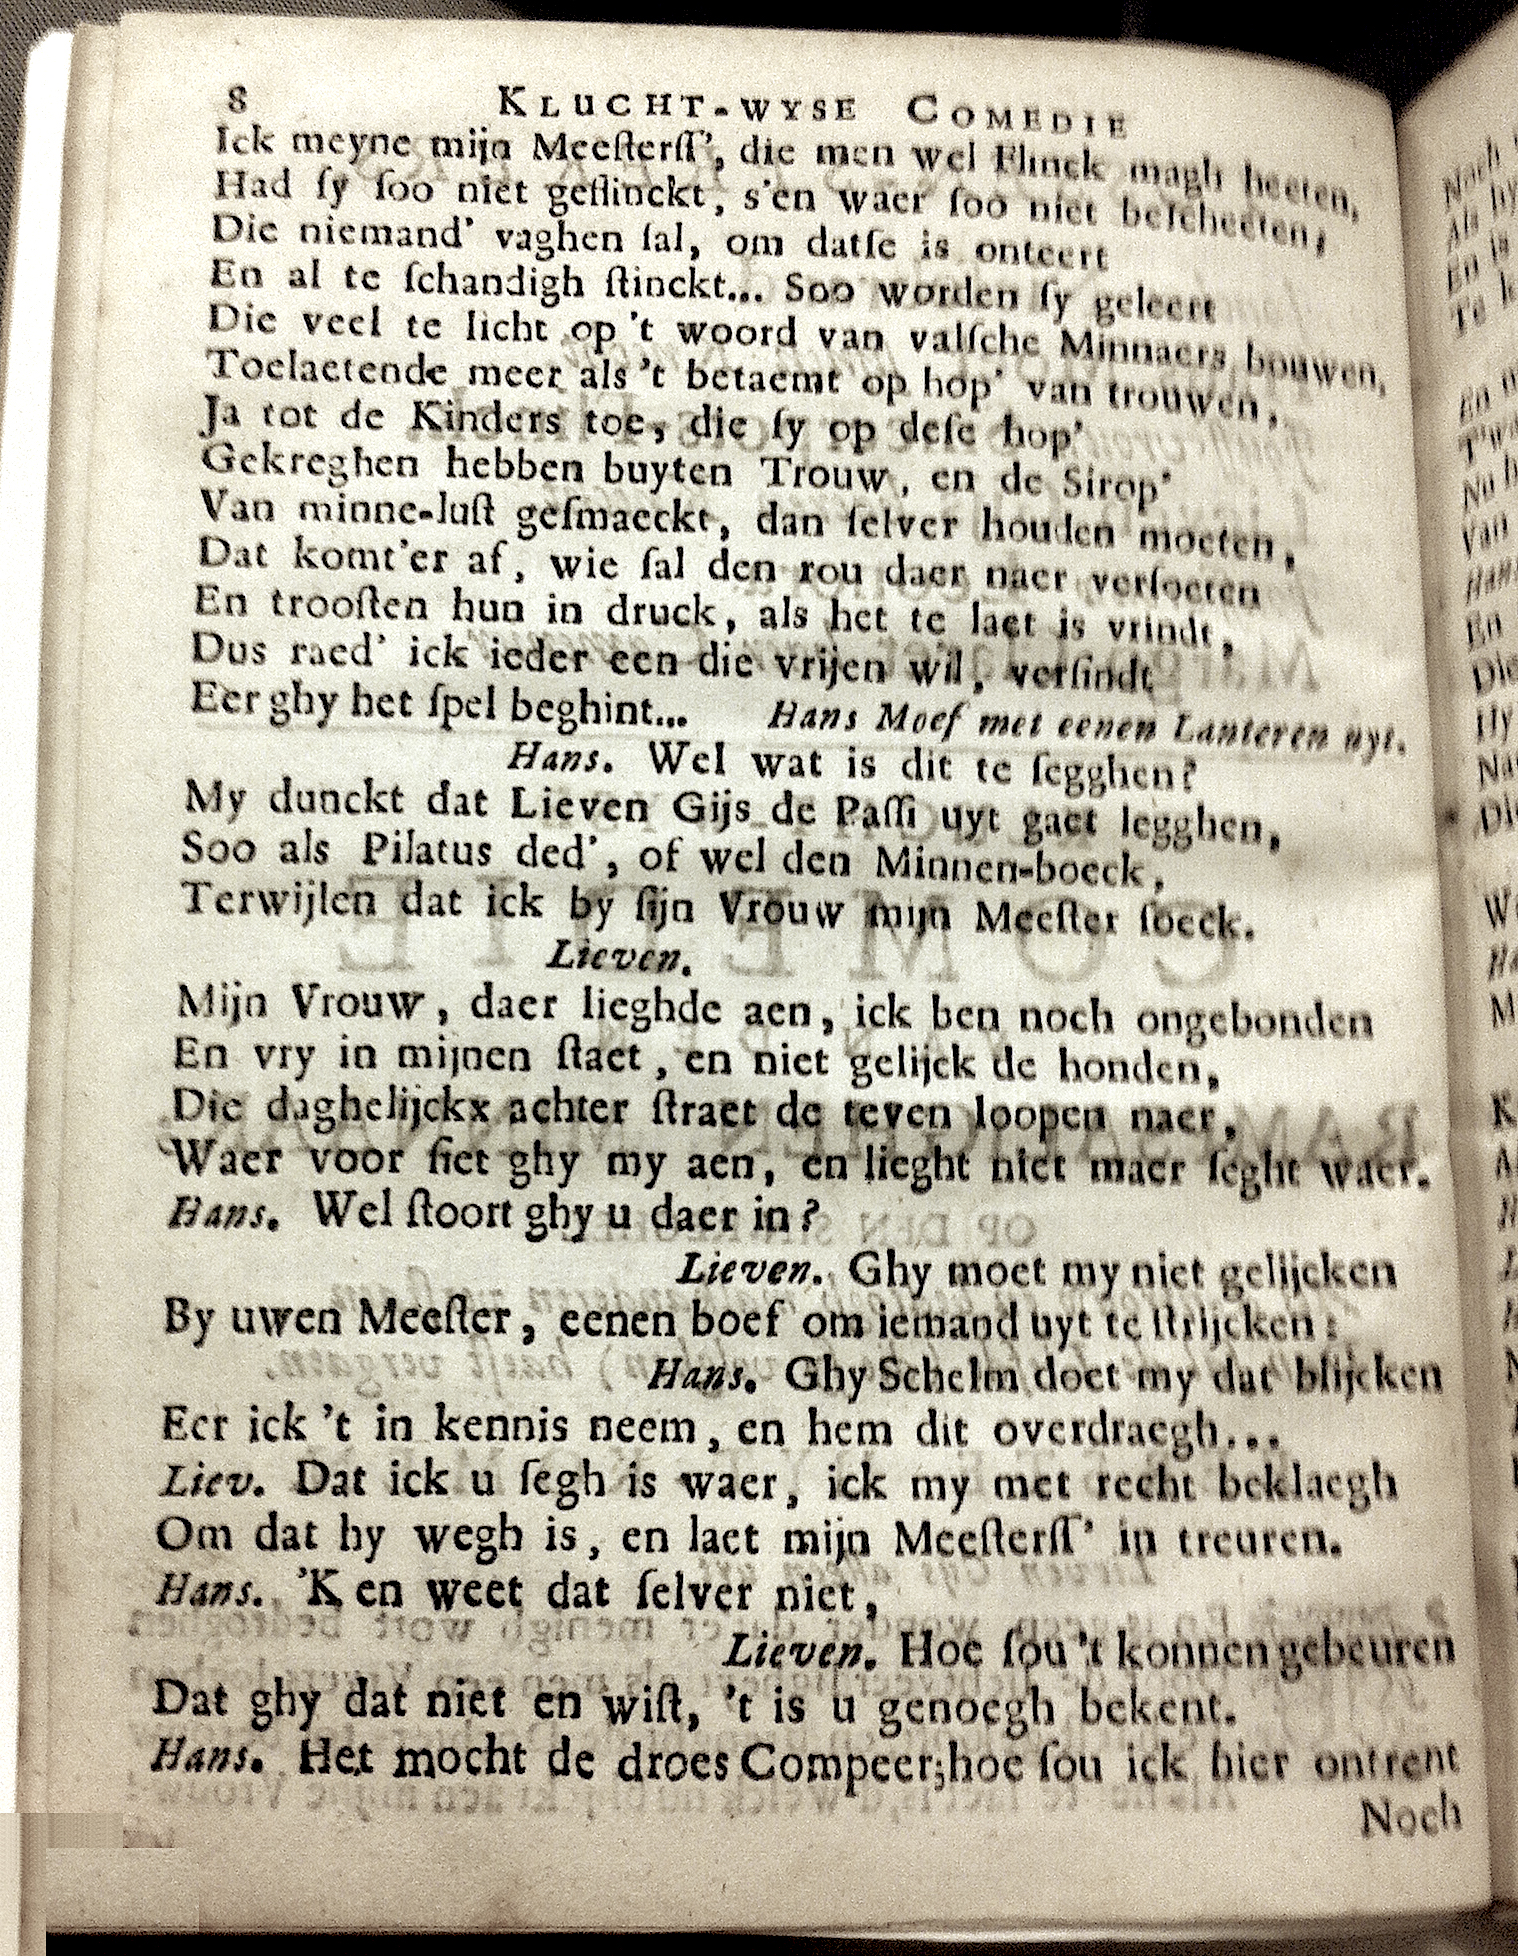 8 KLUCHT-WYSE COMEDIE
Ick meyne mijn Meeſterſſ', die men wel Flinck magh heeten,
Had ſy ſoo niet geflinckt, s'en waer ſoo niet beſcheeten;
Die niemand' vaghen ſal, om datſe is onteert
En al te ſchandigh ſtinckt... Soo worden ſy geleert
Die veel te licht op 't woord van valſche Minnaers bouwen,
Toelaetende meer als 't betaemt op hop' van trouwen,
Ja tot de Kinders toe, die ſy op deſe hop'
Gekreghen hebben buyten Trouw, en de Sirop'
Van minne-luſt geſmaeckt, dan ſelver houden moeten,
Dat komt'er af, wie ſal den rou daer naer verſoeten
En trooſten hun in druck, als het te laet is vrindt,
Dus raed' ick ieder een die vrijen wil, verſindt
Eer ghy het ſpel beghint... Hans Moef met eenen Lanteren uyt.
Hans. Wel wat is dit te ſegghen?
My dunckt dat Lieven Gijs de Paſſi uyt gaet legghen,
Soo als Pilatus ded', of wel den Minnen-boeck,
Terwijlen dat ick by ſijn Vrouw mijn Meeſter ſoeck.
Lieven.
Mijn Vrouw, daer lieghde aen, ick ben noch ongebonden
En vry in mijnen ſtaet, en niet gelijck de honden,
Die daghelijckx achter ſtraet de teven loopen naer,
Waer voor ſiet ghy my aen, en lieght niet maer ſeght waer.
Hans. Wel ſtoort ghy u daer in?
Lieven. Ghy moet my niet gelijcken
By uwen Meeſter, eenen boef om iemand uyt te ſtrijcken:
Hans. Ghy Schelm doet my dat blijcken
Eer ick 't in kennis neem, en hem dit overdraegh...
Liev. Dat ick u ſegh is waer, ick my met recht beklaegh
Om dat hy wegh is, en laet mijn Meeſterſſ' in treuren.
Hans. 'K en weet dat ſelver niet,
Lieven. Hoe ſou 't konnen gebeuren
Dat ghy dat niet en wiſt, 't is u genoegh bekent.
Hans. Het mocht de droes Compeer; hoe ſou ick hier ontrent
Noch